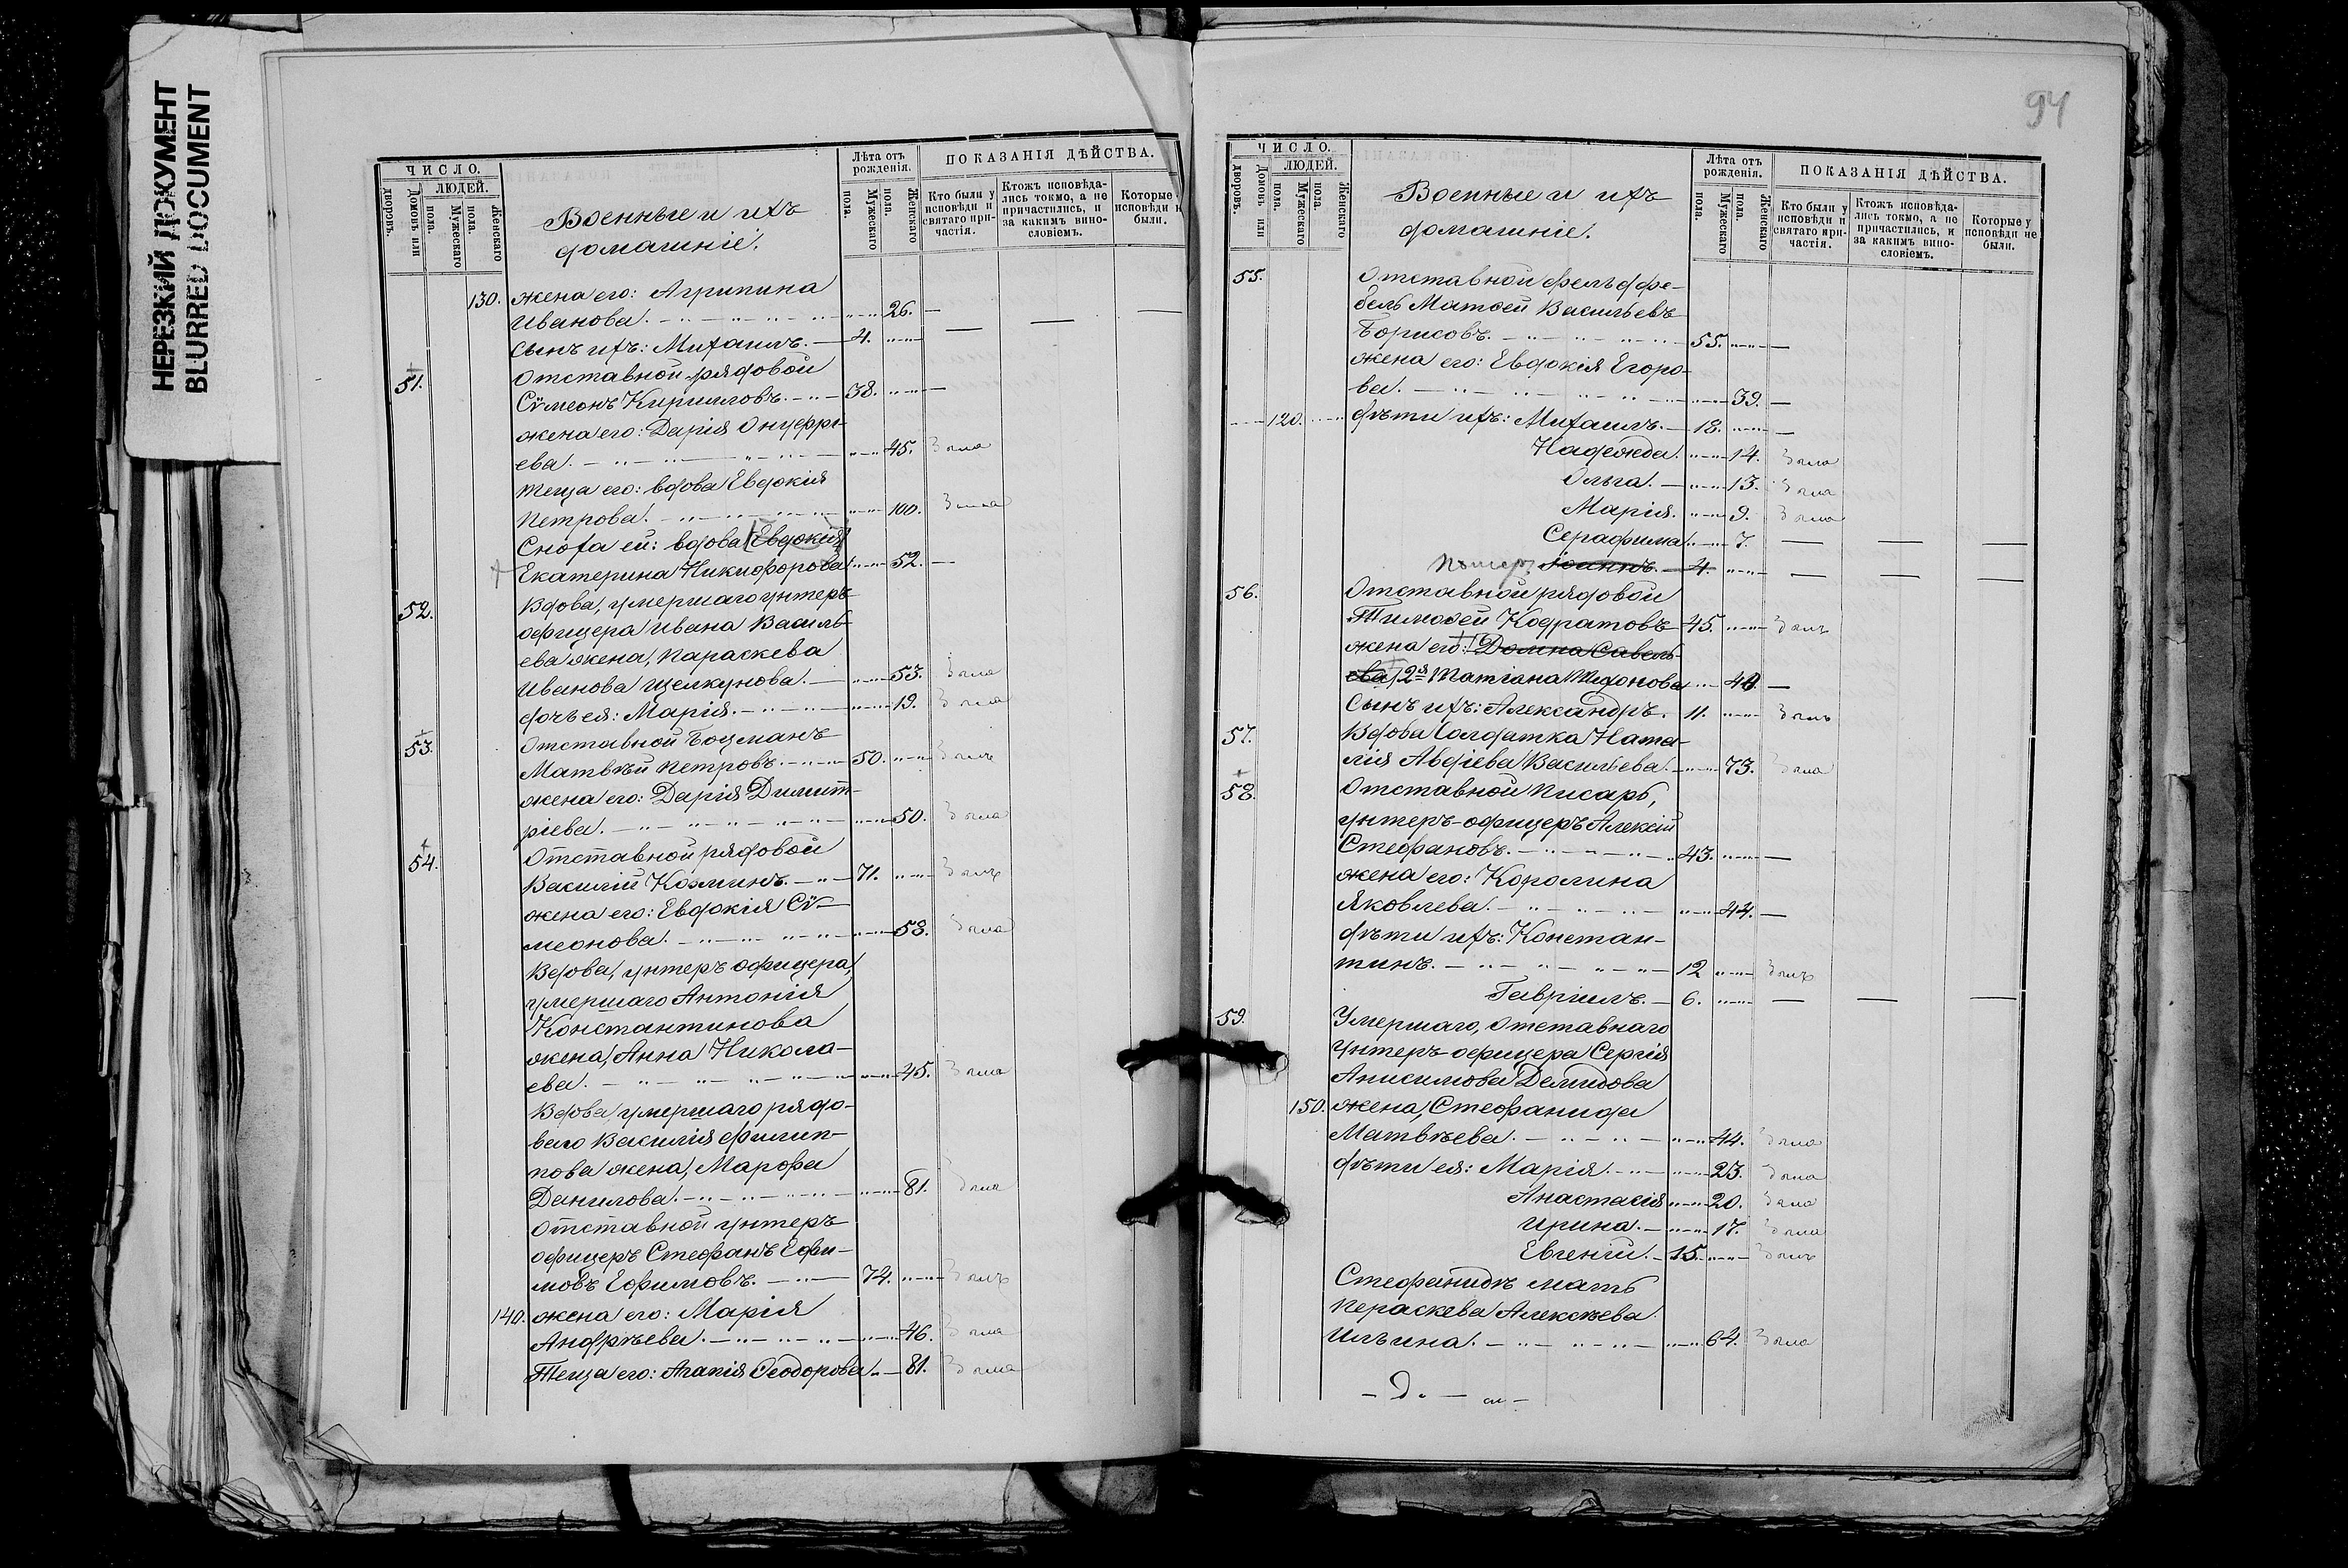 НЕРЕЗКИЙ ДОКУМЕНТ
BLURRED DOCUMENT
ЧИСЛО.
ЛЮДЕЙ.
Домовъ или дворовъ.
Мужескаго пола.
Женскаго пола.
Военные и ихъ
домашніе.
Лѣта отъ рожденія.
Мужескаго пола.
Женскаго пола.
ПОКАЗАНІЯ ДѢЙСТВА.
Кто были у исповѣди и святаго причастія.
Ктожъ исповѣдались токмо, а не причастились, и за какимъ винословіемъ.
Которые исповѣди н были.
130. жена его: Агрипина
Иванова. 26. —
Сынъ ихъ: Михаилъ. 4. — — —
51. Отставной рядовой
Сѵмеонъ Кирилловъ. 38. —
жена его: Дарія Онуфрі-
ева. 45. Была
теща его: вдова Евдокія
Петрова. 100. Была
Сноха ей: вдова [Евдокія]
Екатерина Никифорова 52. —
52. Вдова, умершаго унтеръ
офицера Ивана Василь-
ева жена, Параскева
Иванова Щелкунова. 53. Была
дочь ея: Марія. 19. Была
53. Отставной Боцманъ
Матвѣй Петровъ. 50. Былъ
жена его: Дарія Димит-
ріева. 50. Была
54. Отставной рядовой
Василій Козминъ. 71. Былъ
жена его: Евдокія Сѵ-
меонова. 58. Была
Вдова, унтеръ офицера,
умершаго Антонія
Константинова
жена, Анна Никола-
ева. 45. Была
Вдова, умершаго рядо-
ваго Василія Филип-
пова жена, Марфа
Данилова. 81. Была
Отставной унтеръ
офицеръ Стефанъ Ефи-
мовъ Ефимовъ. 74. Былъ
140. жена его: Марія
Андрѣева. 46. Была
Теща его: Агапія Ѳеодорова 81. Была
94
ЧИСЛО.
ЛЮДЕЙ.
Домовъ или дворовъ.
Мужескаго пола.
Женскаго пола.
Военные и ихъ
домашніе.
Лѣта отъ рожденія.
Мужескаго пола.
Женскаго пола.
ПОКАЗАНІЯ ДѢЙСТВА.
Кто были у исповѣди и святаго причастія.
Ктожъ исповѣдались токмо, а не причастились, и за какимъ винословіемъ.
Которые у исповѣди не были.
55. Отставной фельдфе-
бель Матѳей Васильевъ
Борисовъ. 55. —
жена его: Евдокія Егоро-
ва. 39. —
120. дѣти ихъ: Михаилъ. 18. —
Надежда. 14. Была
Ольга. 13. Была
Марія. 9. Была
Серафима 7. — — —
Помер. Іоаннъ. 4. — — —
56. Отставной рядовой
Тимоѳей Кодратовъ 45. Былъ
жена его: Домна Савель-
ева 2я Татіана 40. —
Сынъ ихъ: Александръ. 11. Былъ
57. Вдова Солдатка Ната-
лія Авдіева Васильева. 73. Была
58. Отставной Писарь,
унтеръ-офицеръ Алексій
Стефановъ. 43. —
жена его: Каролина
Яковлева. 44. —
дѣти ихъ: Констан-
тинъ. 12 Былъ
Гавріилъ. 6. — — —
59. Умершаго, отставнаго
Унтеръ-офицера Сергія
Анисимова Демидова
150. жена, Стефанида
Матвѣева. 44. Была
дѣти ея: Марія. 23. Была
Анастасія 20. Была
Ирина. 17. Была
Евгеній. 15. Былъ
Стефанидѣ мать
Параскева Алексѣева
Ильина. 64. Была